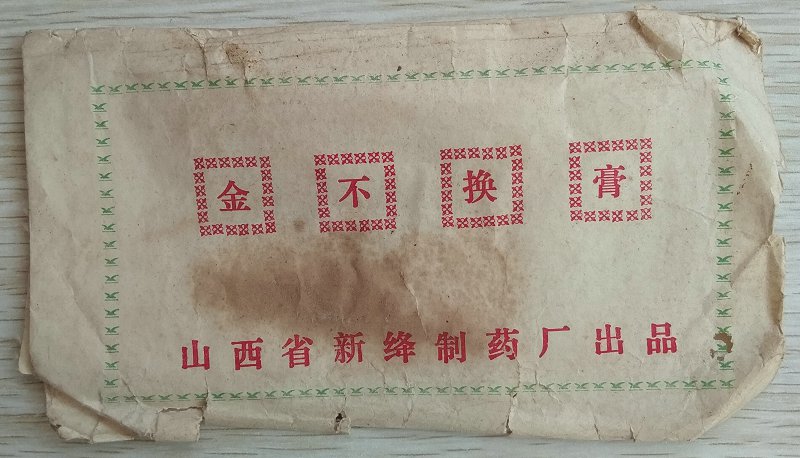 金不换膏
山西省新绛制药厂出品